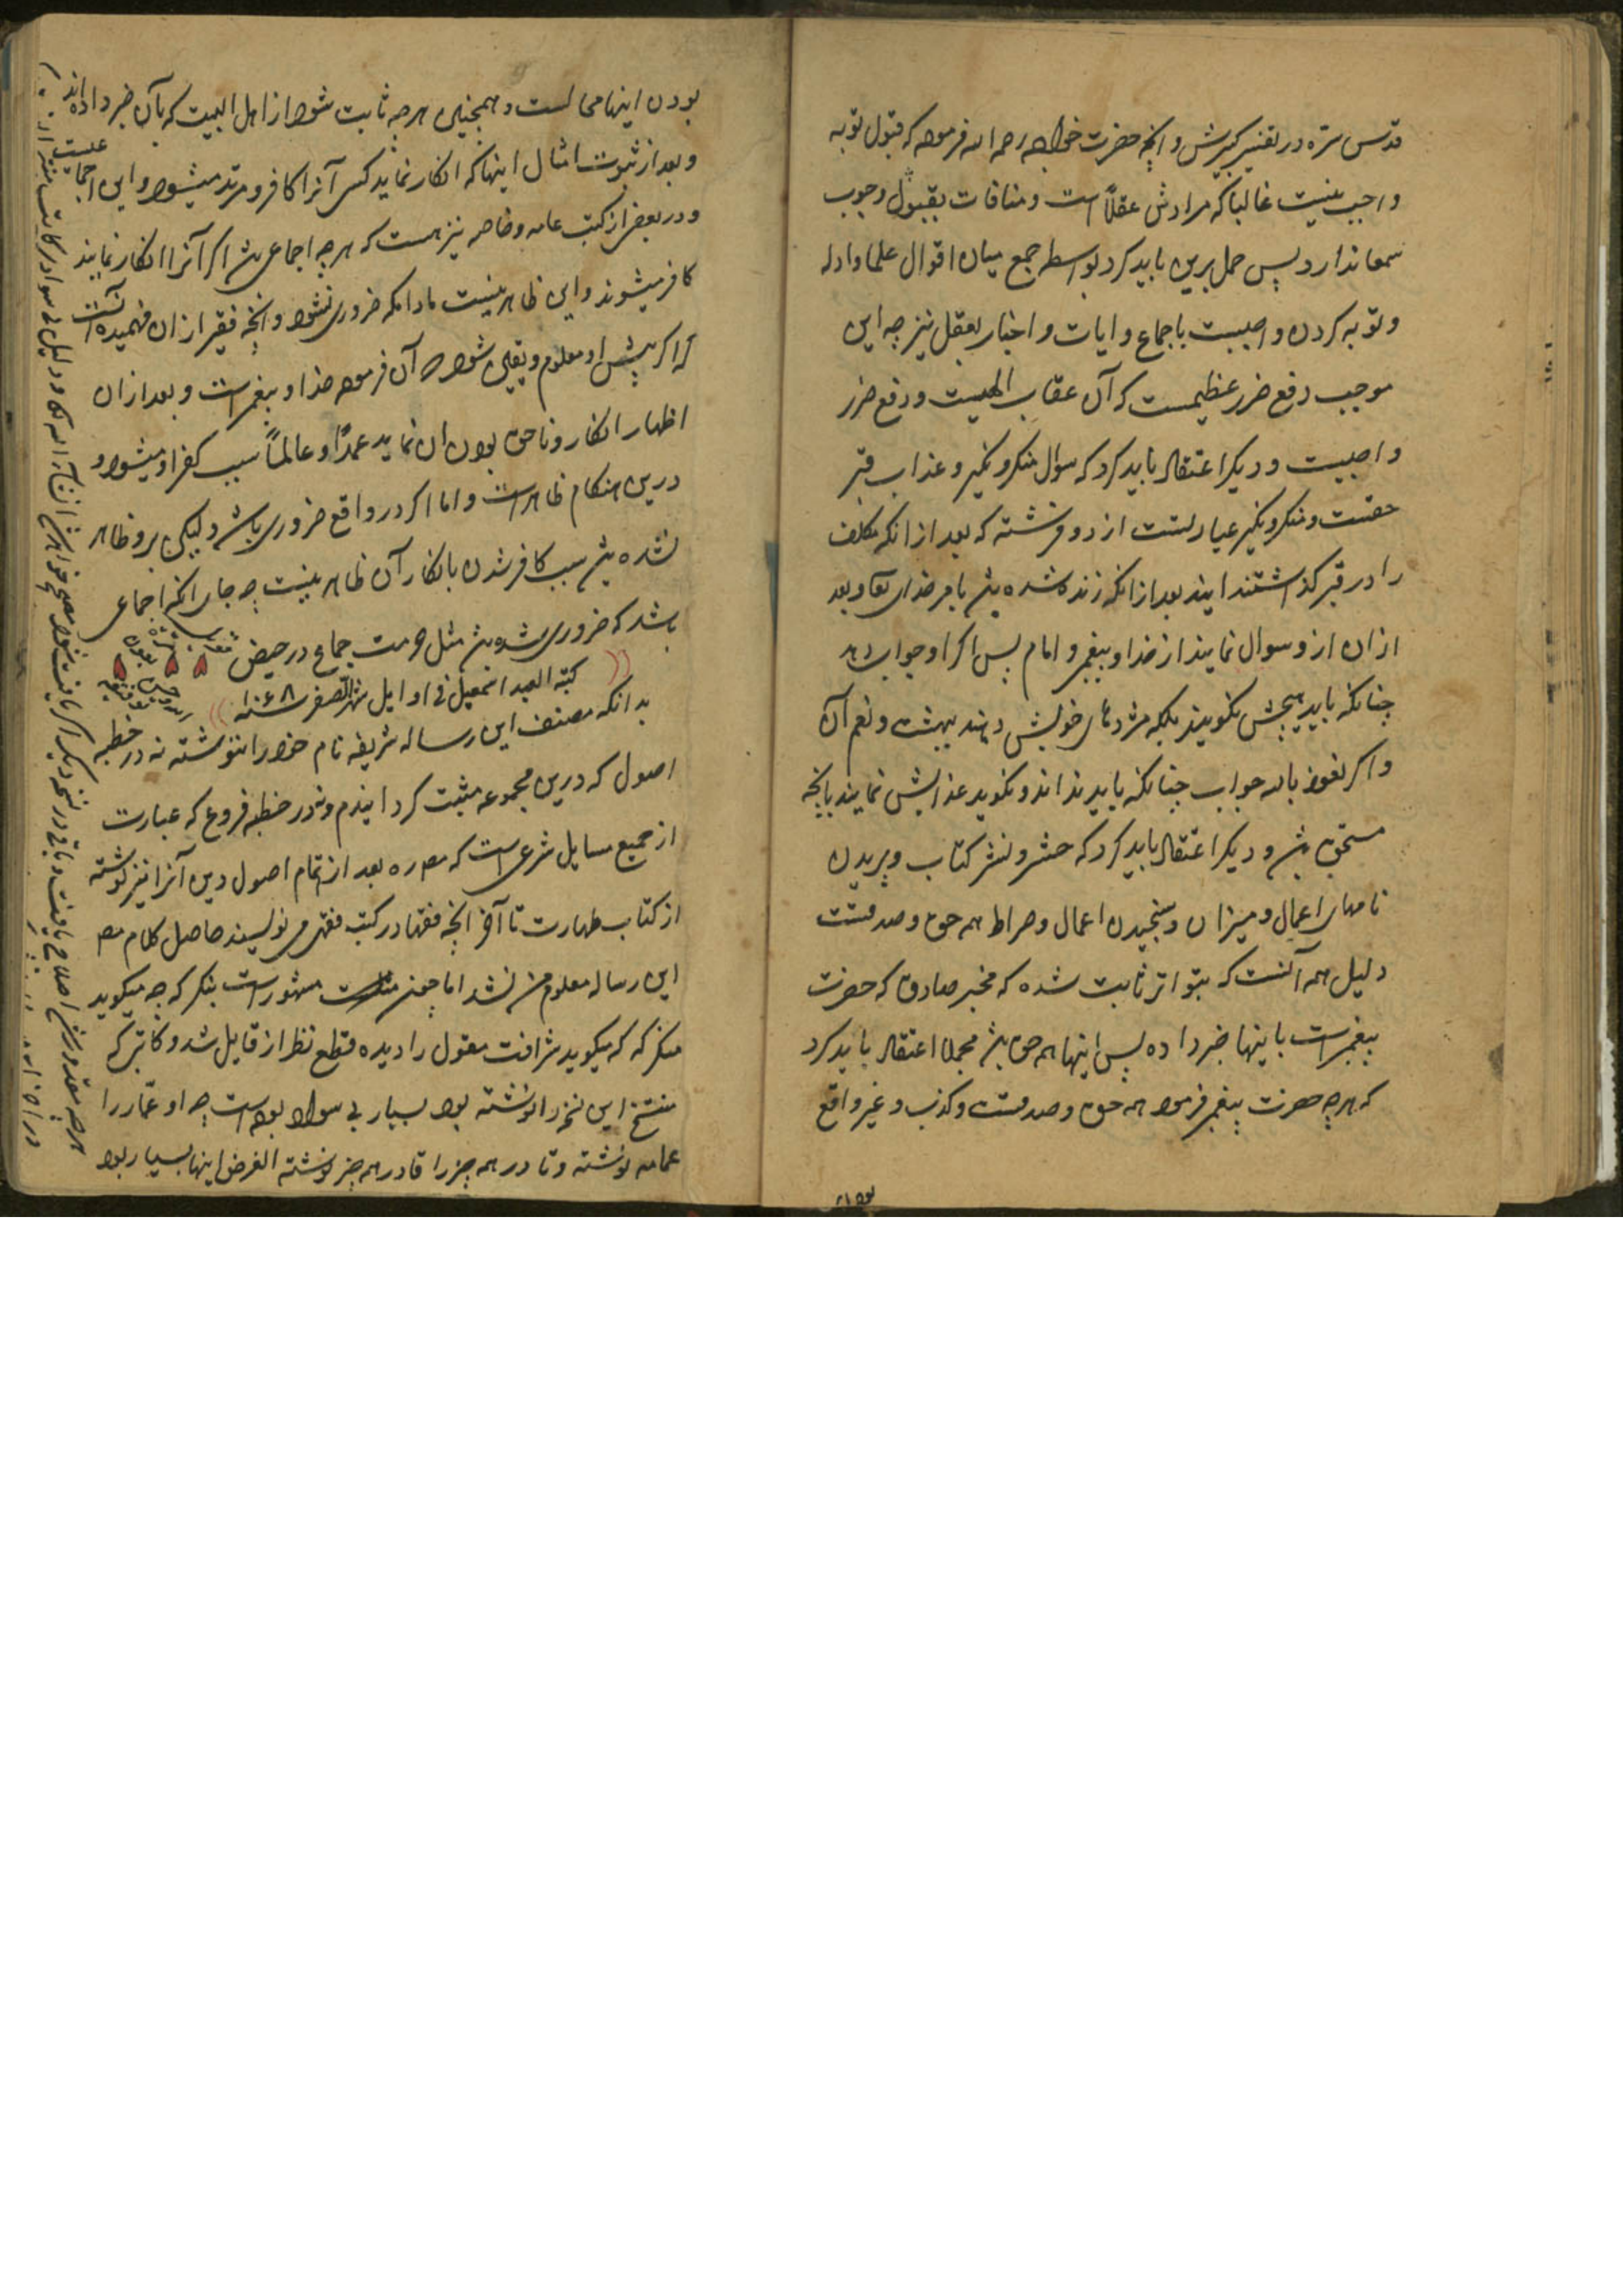 قدس سره در تفسیر کبیرش و انچه حضرت خواجه رحمه الله فرموده که قبول توبه
واجب نیست غالبا که مرادش عقلاً است و منافات بقبول وجوب
سمعا ندارد پس حمل برین باید کرد بواسطه جمع میان اقوال علما و ادله
و توبه کردن واجبست باجماع و ایات و اخبار بعقل نیز چه این
موجب دفع ضرر عظیمست که آن عقاب الهیست و دفع ضرر
واجبست و دیکر اعتقاد باید کرد که سؤال منکر و نکیر و عذاب قبر
حقست و منکر و نکیر عبارتست از دو فرشته که بعد از انکه مکلف
را در قبر کذاشتند ایند بعد از انکه زنده شده باشد بامر خدای تعا و بعد
ازان ازو سوال نمایند از خدا و پیغمبر و امام پس اکر او جواب دهد
چنانکه باید هیچش نکویند بلکه مژدهای خویش دهند ببهشت و نعم آن
و اکر نعوذ بالله جواب چنانکه باید نداند و نکوید عذابش نمایند بانچه
مستحق باشد و دیکر اعتقاد باید کرد که حشر و نشر کتاب و پریدن
نامهای اعمال و میزان و سنجیدن اعمال و صراط همه حق و صدقست
دلیل همه آنست که بتواتر ثابت شده که مخبر صادق که حضرت
پیغمبرست باینها خبر داده پس اینها همه حق باشد مجملا اعتقاد باید کرد
که هرچه حضرت پیغمبر فرموده همه حق و صدقست و کذب و غیر واقع
بودن
بودن اینها محالست و همچنین هرچه ثابت شود از اهل البیت که بآن خبر داده‌اند
و بعد از ثبوت امثال اینها که انکار نماید کسی آنرا کافر و مرتد میشود و این اجماعیست
و در بعضی از کتب عامه و خاصه نیز هست که هرچه اجماعی باشد اکر آنرا انکار نمایند
کافر میشوند و این ظاهر نیست مادامکه ضروری نشود و انچه فقیر ازان فهمیده آنست
که اکر پیش او معلوم و یقین شود که آن فرموده خدا و پیغمبر است و بعد ازان
اظهار انکار و ناحق بودن ان نماید عمدًا و عالمًا سبب کفر او میشود و
درین هنکام ظاهر است و اما اکر در واقع ضروری باشد ولیکن برو ظاهر
نشده باشد سبب کافر شدن بانکار آن ظاهر نیست چه جای انکه اجماعی
باشد که ضروری شده باشد مثل حرمت جماع در حیض
کتبه العبد اسمعیل فی اوایل شهر صفر سنه ۱۰۶۸
بدانکه مصنف این رساله شریفه نام خود را ننوشته نه در خطبه
اصول که درین مجموعه مثبت کردانیدم و نه در خطبه فروع که عبارت
از جمیع مسایل شرعی است که مصره بعد از تمام اصول دین آنرا نیز نوشته
از کتاب طهارت تا آخر انچه فقها در کتب فقهی می نویسند حاصل کلام مصر
این رساله معلوم من نشد اما چون مثلست مشهور است بنکر که چه میکوید
منکر که که میکوید شرافت مقول را دیده قطع نظر از قایل شد و کاتبی که
منتسخ این نسخه را نوشته بود بسیار بی سواد بوده است چه او عمّار را
عمامه نوشته و تا در همه چیز را قادر همه چیز نوشته الغرض اینها بسیار بود
هرچه مقدور من شد اصلاح یافت و باقی در نسخه دیکر اکر یافت شود مصحح خواهد شد انشاء الله